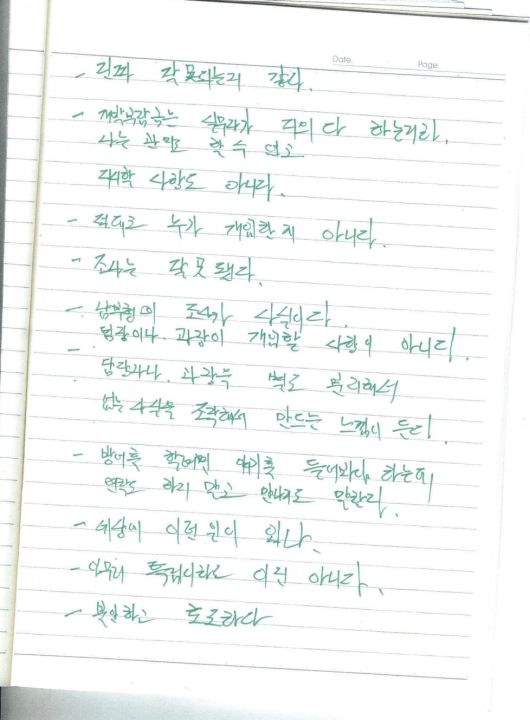 Date. Page.
- 진짜 잘못되는거 같다.
- 개발부담금는 실무자가 거의 다 하는거라.
나는 관여도 할 수 없고
사항도 아니다.
- 절대로 누가 개입한 게 아니다.
- 조사는 잘못됐다.
- 조사가 사실이다.
담당이나. 과장이 개입할 사항이 아니다.
- 담당과나. 과장을 별로 분리해서
없는 사실을 조작해서 만드는 느낌이 든다.
- 방어를 할려면 얘기를 들어봐야 하는데
연락도 하지 말고 만나지도 말란다.
- 세상에 이런 일이 있나.
- 아무리 이건 아니다.
- 불안하고 초조하다